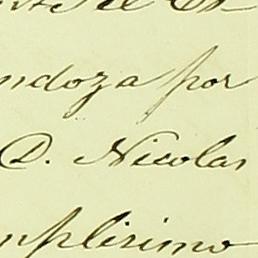 ndoza por
D. Nicolas
mplisimo